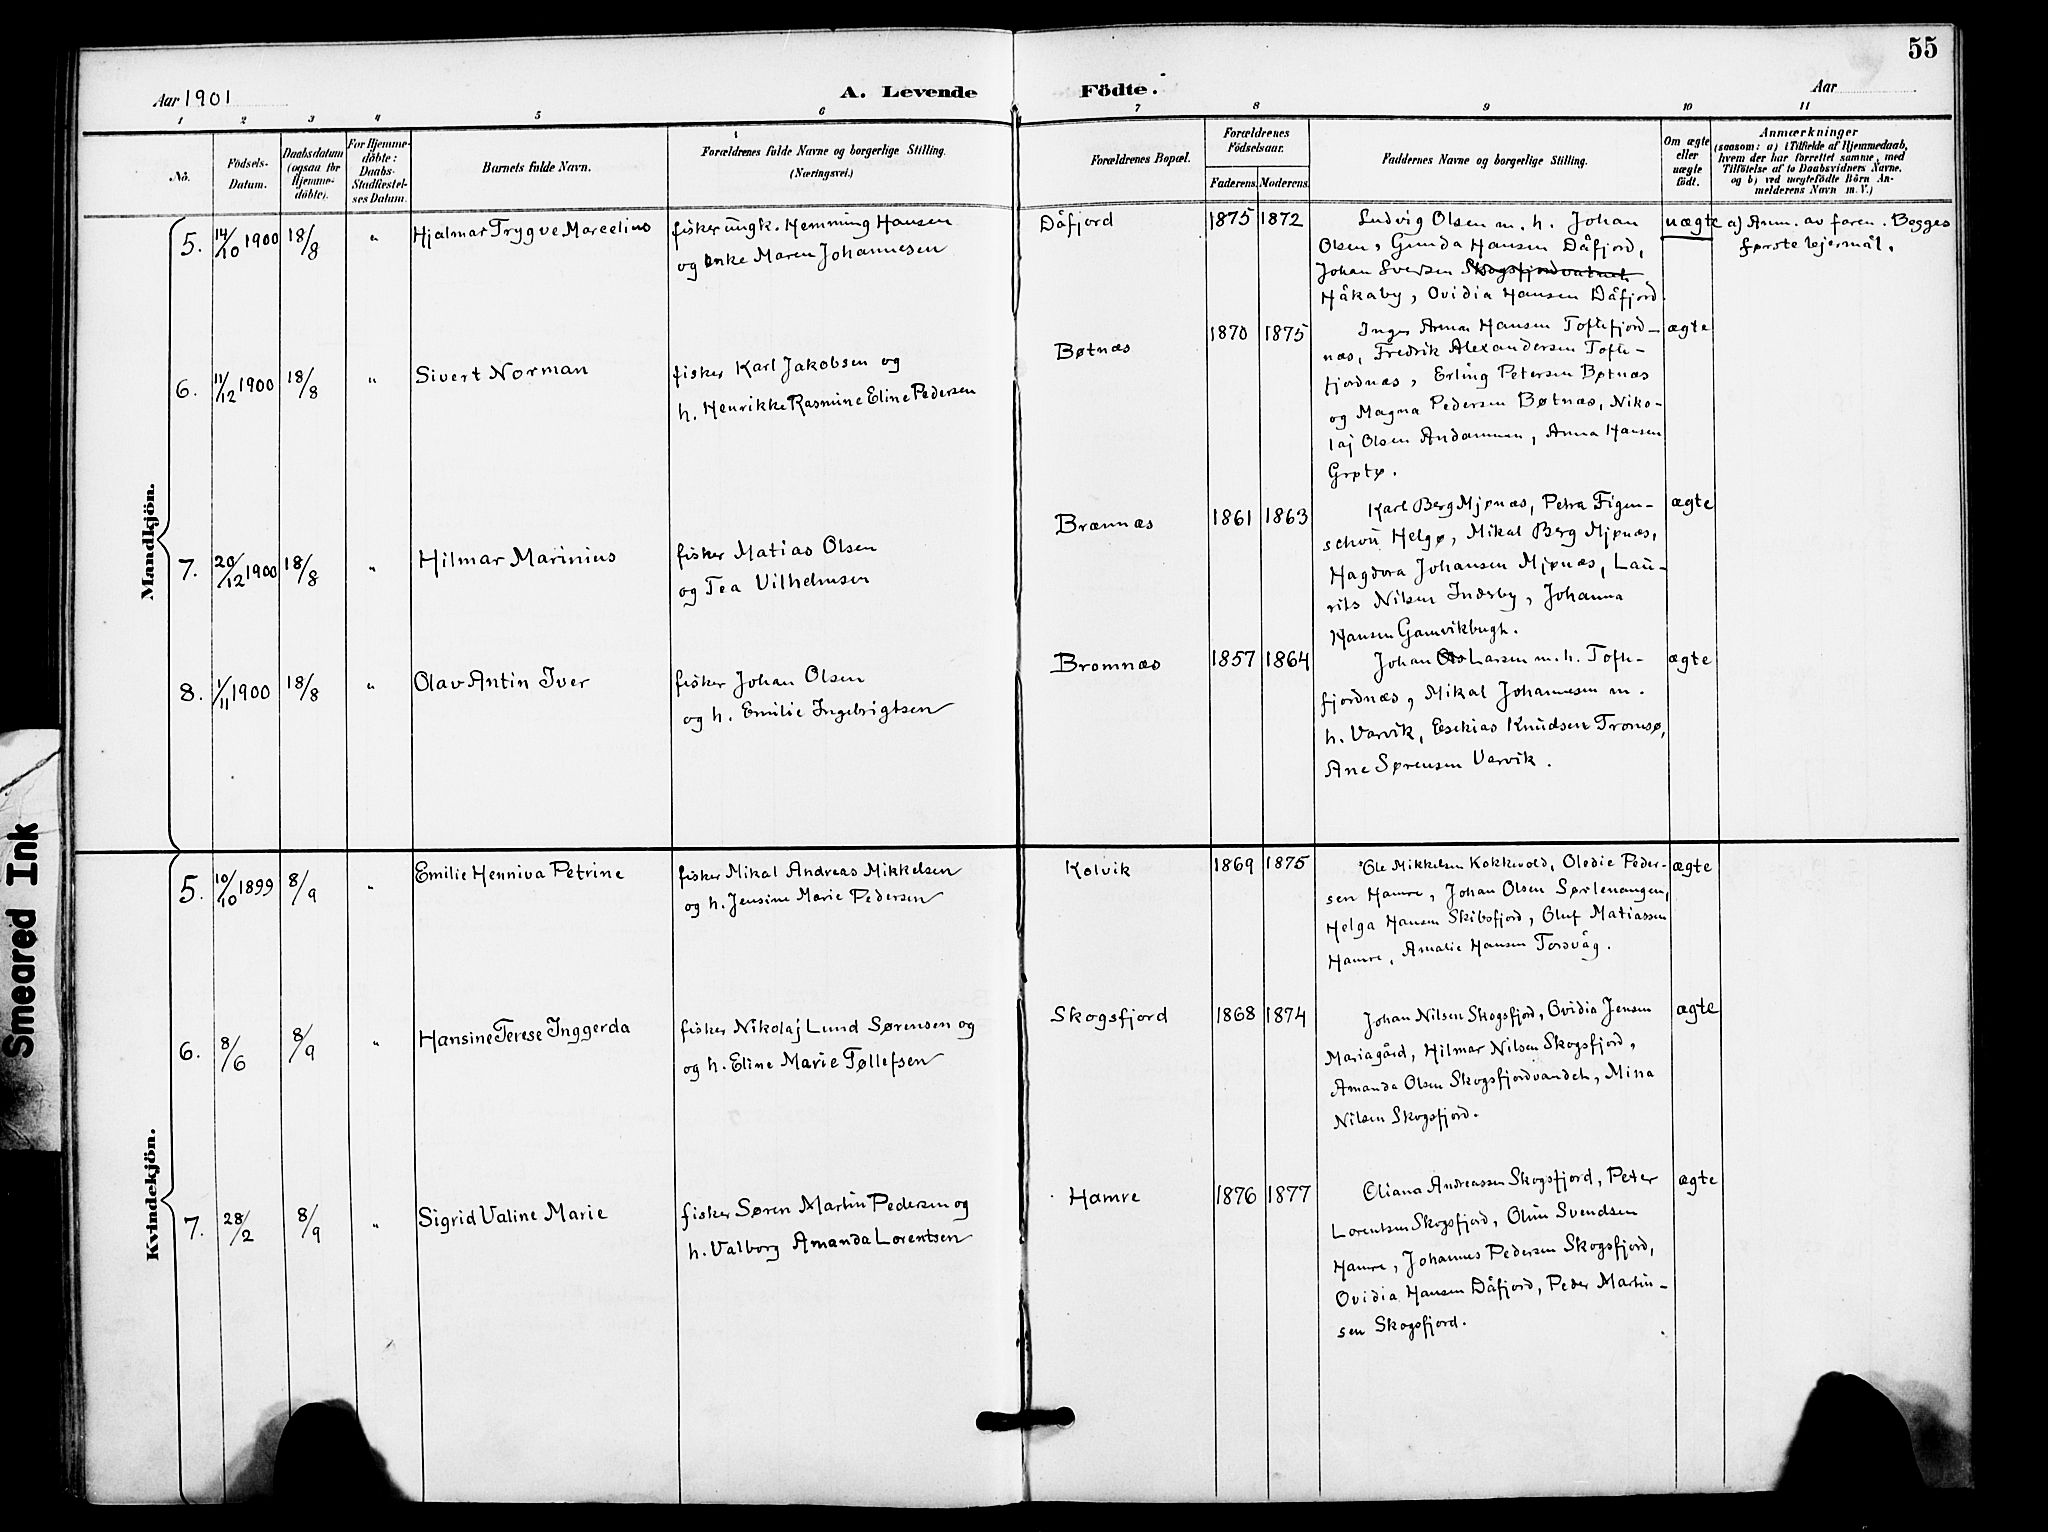 55
Aar 1901
A. Levende Födte.
Aar
1 2 3 4 5 6 7 8 9 10 11
No.
Födsels-
Datum.
Daabsdatum
(ogsaa for
Hjemme-
döbte).
For Hjemme-
döbte:
Daabs-
Stadfæstel-
ses Datum.
Barnets fulde Navn.
Forældrenes fulde Navne og borgerlige Stilling.
(Næringsvei.)
Forældrenes Bopæl.
Forældrenes
Födselsaar.
Faderens. Moderens.
Faddernes Navne og borgerlige Stilling.
Om ægte
eller
uægte
födt.
Anmærkninger
(saasom: a) i Tilfælde af Hjemmedaab,
hvem der har forrettet samme, med
Tilföielse af to Daabsvidners Navne,
og b) ved uægtefödte Börn An-
melderens Navn m. V.)
Mandkjön.
5. 14/10 1900 18/8 " Hjalmar Trygve Marcelius
fisker ungk. Hemming Hansen
og enke Maren Johannesen
Dåfjord 1875 1872
Ludvig Olsen m. h. Johan
Olsen, Gunda Hansen Dåfjord,
Johan Sversen Skogsfjordvatnet
Håkaby, Ovidia Hansen Dåfjord.
uægte
a) Anm. av faren. Begges
første lejermål.
6. 11/12 1900 18/8 " Sivert Norman
fisker Karl Jakobsen og
h. Henrikke Rasmine Eline Pedersen
Bøtnæs 1870 1875
Inger Anna Hansen Toftefjord-
næs, Fredrik Alexandersen Tofte-
fjordnæs, Erling Petersen Bøtnæs
og Magna Pedersen Bøtnæs, Niko-
laj Olsen Andammen, Anna Hansen
Grøtø.
ægte
7. 20/12 1900 18/8 " Hilmar Marinius
fisker Matias Olsen
og Tea Vilhelmsen
Brænnæs 1861 1863
Karl Berg Mjønæs, Petra Figen-
schou Helgø, Mikal Berg Mjønæs,
Hagdora Johansen Mjønæs, Lau-
rits Nilsen Indreby, Johanna
Hansen Gamvikbugh.
ægte
8. 1/11 1900 18/8 " Olav Antin Iver
fisker Johan Olsen
og h. Emilie Ingebrigtsen
Bromnæs 1857 1864
Johan Larsen m. h. Tofte-
fjordnæs, Mikal Johannesen m.
h. Varvik, Esekias Knudsen Tromsø,
Ane Sørensen Varvik.
ægte
Kvindekjön.
5. 10/10 1899 8/9 " Emilie Henniva Petrine
fisker Mikal Andreas Mikkelsen
og h. Jensine Marie Pedersen
Kolvik 1869 1875
Ole Mikkelsen Kokkevold, Oledie Peder-
sen Hamre, Johan Olsen Sørlenangen,
Helga Hansen Skibsfjord, Oluf Matiassen
Hamre, Amalie Hansen Torsvåg.
ægte
6. 8/6 8/9 " Hansine Terese Inggerda
fisker Nikolaj Lund Sørensen og
og h. Eline Marie Tøllefsen
Skogsfjord 1868 1874
Johan Nilsen Skogsfjord, Ovidia Jensen
Mariagård, Hilmar Nilsen Skogsfjord,
Amanda Olsen Skogsfjordvandet, Mina
Nilsen Skogsfjord.
ægte
7. 28/2 8/9 " Sigrid Valine Marie
fisker Søren Martin Pedersen og
h. Valborg Amanda Lorentsen
Hamre 1876 1877
Eliana Andreassen Skogsfjord, Peter
Lorentsen Skogsfjord, Oluv Svendsen
Hamre, Johannes Pedersen Skogsfjord,
Ovidia Hansen Dåfjord, Peder Martin-
sen Skogsfjord.
ægte
Smeared Ink